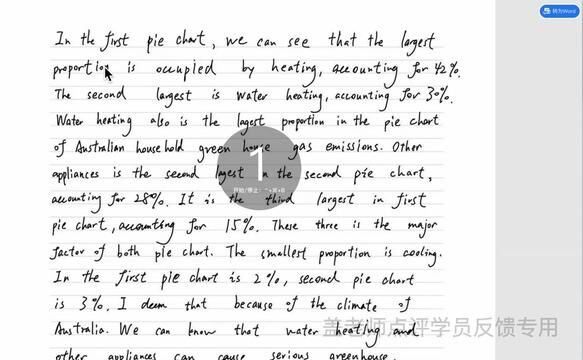 转为Word
In the first pie chart, we can see that the largest
proportion is occupied by heating, accounting for 42%.
The second largest is water heating, accounting for 30%.
Water heating also is the lagest proportion in the pie chart
of Australian household green house gas emissions. Other
appliances is the second lagest in the second pie chart,
accounting for 28%. It is the third largest in first
pie chart, accounting for 15%. These three is the major
factor of both pie chart. The smallest proportion is cooling.
In the first pie chart is 2%, second pie chart
is 3%. I deem that because of the climate of
Australia. We can know that water heating and
other appliances can cause serious greenhouse
1
开始/停止:
盖老师点评学员反馈专用